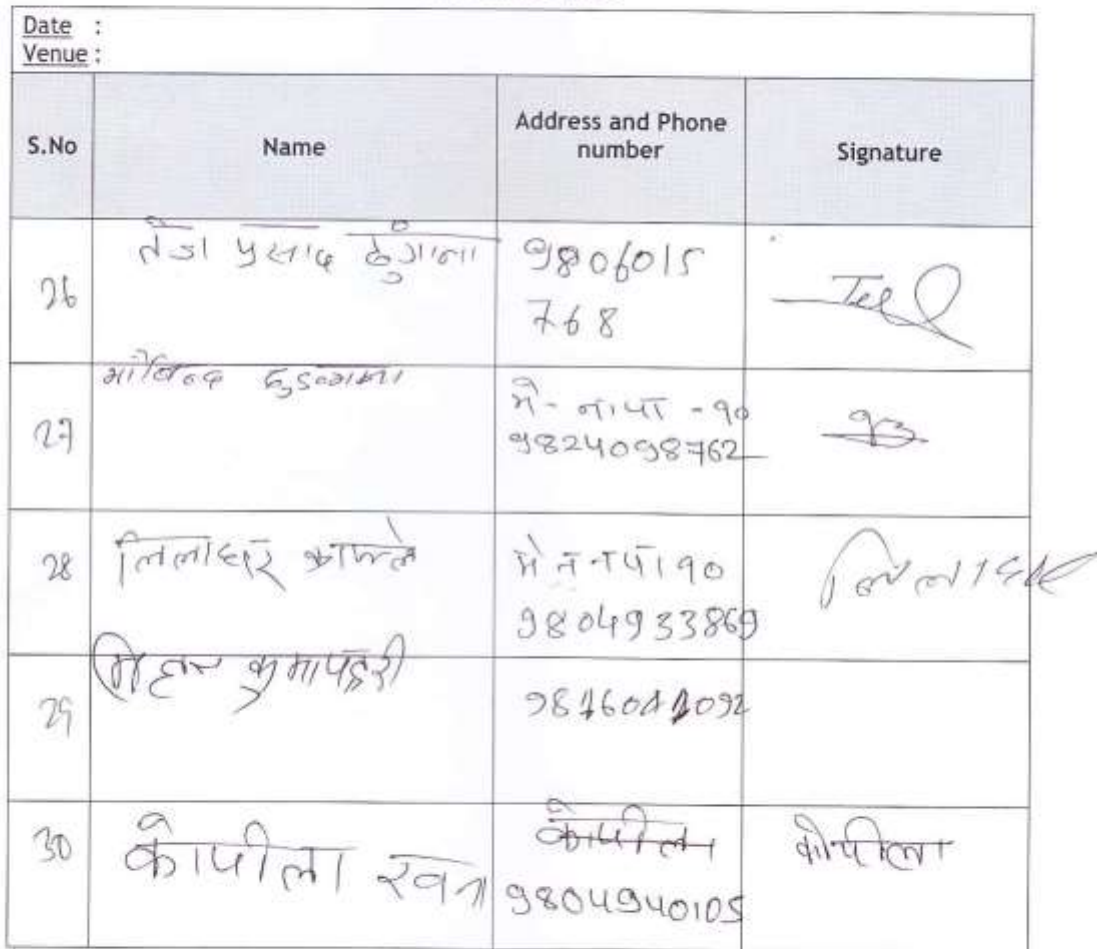 Date :
Venue :
S.No Name Address and Phone number Signature
26 तेजा प्रसाद ढुंगाना 9806015
768
27 गोविन्द
मे- नापा -१०
9824098762
28 लिलाधर काफ्ले मे न नपा १०
9804933869 लिलाधर
29
30 कोपीला कोपीला कोपीला
9804940105